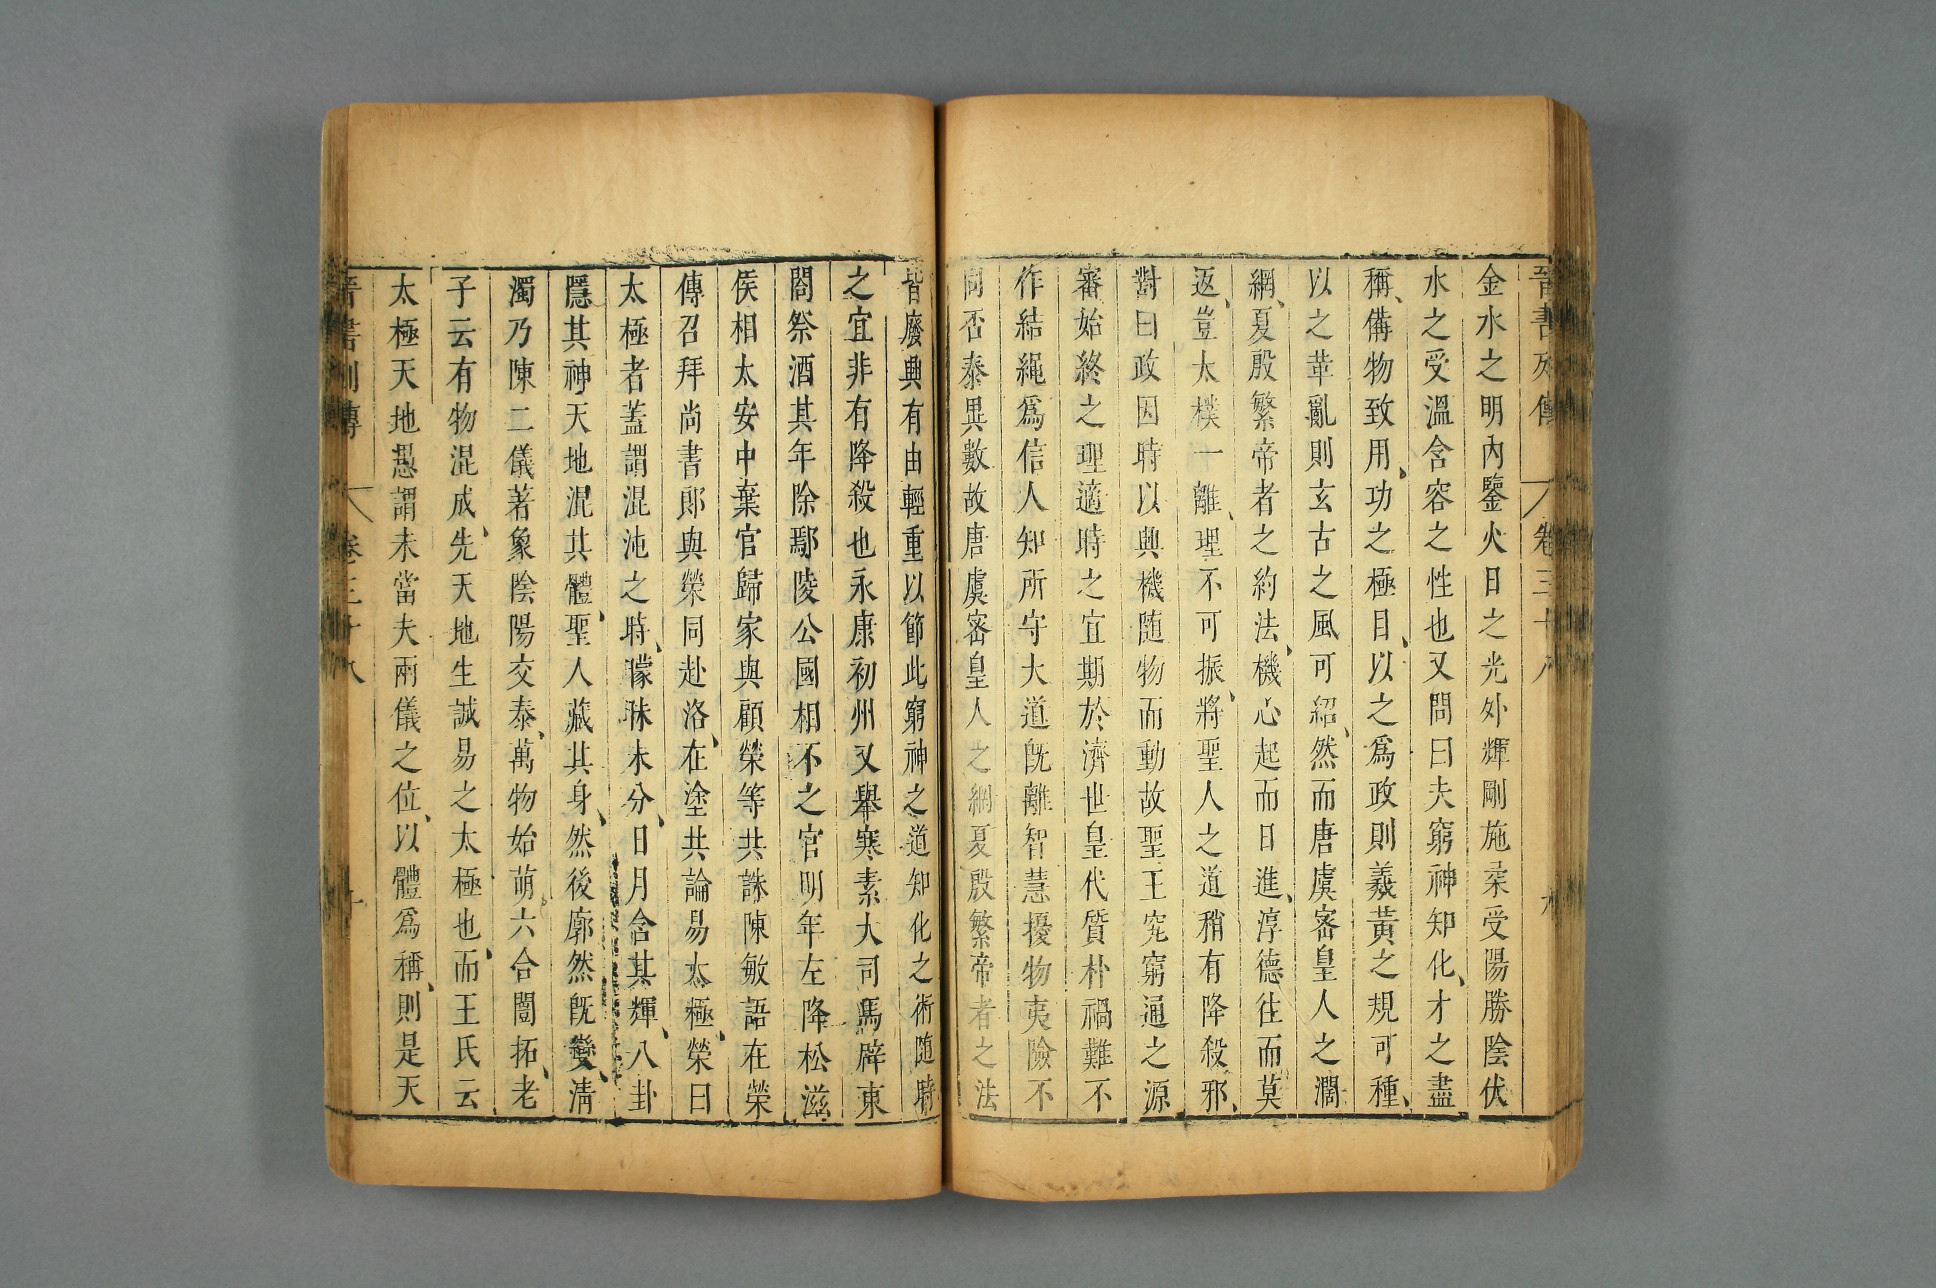 晉書列傳 卷三十八 九
金水之明內鑒火日之光外輝剛施柔受陽勝陰伏
水之受溫含容之性也又問曰夫窮神知化才之盡
稱備物致用功之極目以之爲政則羲黃之規可種
以之革亂則玄古之風可紹然而唐虞密皇人之濶
網夏殷繁帝者之約法機心起而日進淳德往而莫
返豈太樸一離理不可振將聖人之道稍有降殺邪
對曰政因時以興機隨物而動故聖王究窮通之源
審始終之理適時之宜期於濟世皇代質朴禍難不
作結繩爲信人知所守大道旣離智慧擾物夷險不
同否泰異數故唐虞密皇人之網夏殷繁帝者之法
皆廢興有由輕重以節此窮神之道知化之術隨時
之宜非有降殺也永康初州又舉寒素大司馬辟東
閤祭酒其年除鄢陵公國相不之官明年左降松滋
侯相太安中棄官歸家與顧榮等共誅陳敏語在榮
傳召拜尚書郞與榮同赴洛在塗共論易太極榮曰
太極者蓋謂混沌之時曚昧未分日月含其輝八卦
隱其神天地混其體聖人藏其身然後廓然旣變淸
濁乃陳二儀著象陰陽交泰萬物始萌六合闓拓老
子云有物混成先天地生誠易之太極也而王氏云
太極天地愚謂未當夫兩儀之位以體爲稱則是天
晉書列傳 卷三十八 十